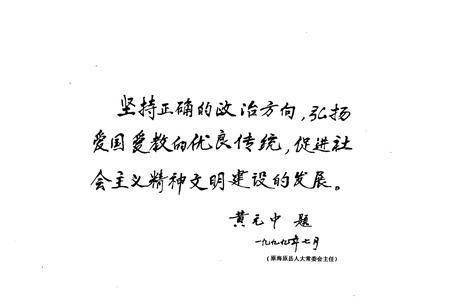 坚持正确的政治方向，弘扬
爱国爱教的优良传统，促进社
会主义精神文明建设的发展。
黄元中 题
一九九九年七月
（原海原县人大常委会主任）